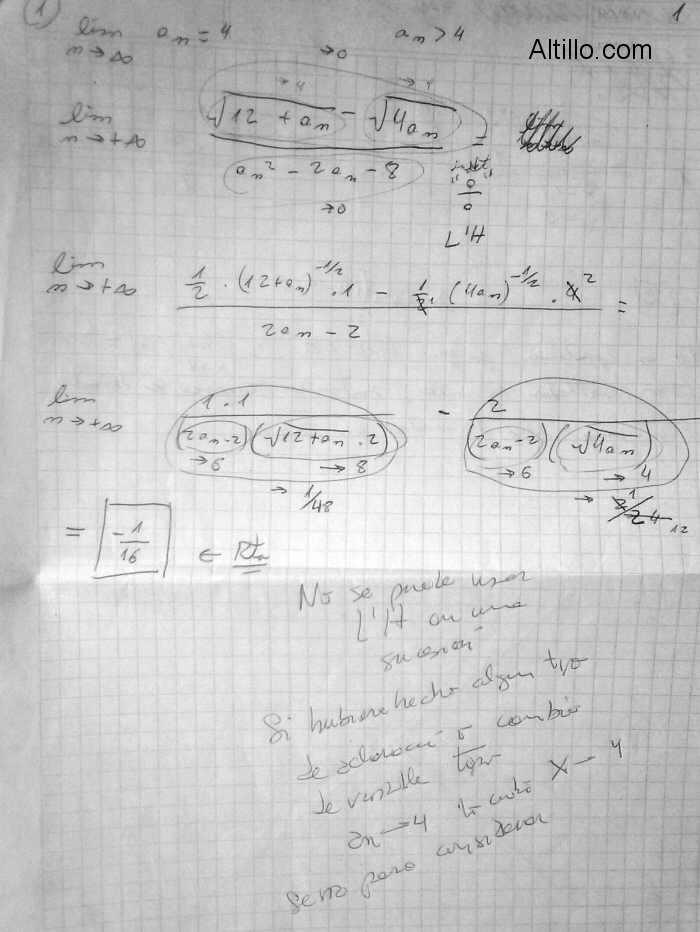 1) lim n→∞ an = 4 an > 4
1
Altillo.com
→0
→4 →4
lim n→+∞ (√12 + an − √4an) / (an² − 2an − 8) =
→0
indet "0/0"
L'H
lim n→+∞ (1/2 · (12+an)^-1/2 · 1 − 1/2 · (4an)^-1/2 · 4 2) / (2an − 2) =
lim n→+∞ 1·1 / (2an-2)(√12+an · 2) − 2 / (2an-2)(√4an)
→6 →8 →6 →4
→ 1/48 → 1 2/24 12
= -1/16 ← Rta
No se puede usar
L'H en una
sucesión
Si hubiera hecho algun tipo
de aclaración o cambio
de variable tipo
an→4 X→4
seria para considerar